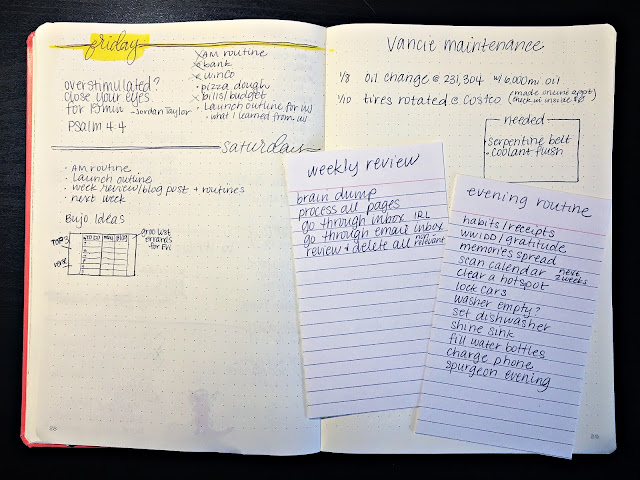 friday
overstimulated?
close your eyes
for 15 min -Jordan Taylor
Psalm 4:4
x AM routine
x bank
x winco
• pizza dough
x bills/budget
• Launch outline for
- what I learned from
saturday
• AM routine
• Launch outline
• week review/blog post + routines
• next week
Bujo Ideas
TOP 3
groc list
errands
for Fri
Vancie maintenance
1/8 oil change @ 231,304 w/ 6,000 mi oil
1/10 tires rotated @ Costco (made online appt
check in inside
needed
• serpentine belt
• coolant flush
weekly review
brain dump
process all pages
go through inbox IRL
go through email inbox
review + delete all non relevant
evening routine
habits/receipts
WWIDD/gratitude
memories spread
scan calendar next 2 weeks
clear a hotspot
lock cars
washer empty?
set dishwasher
shine sink
fill water bottles
charge phone
spurgeon evening